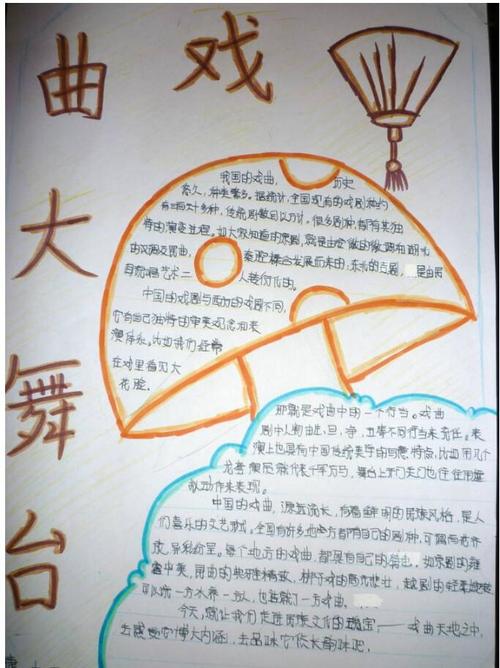 戏
曲
大
舞
台
我国的戏曲, 历史
悠久,种类繁多。据统计,全国现有的戏剧种约
有三百六十多种,传统剧数目以万计。很多剧种,都有其独
特的演变过程。如大家知道的京剧,就是由安徽的徽调和湖北
的汉调及昆曲, 秦腔揉合发展而来的;东北的吉剧, 是由民
间歌唱艺术二 人转衍化的。
中国的戏剧与西方的戏剧不同,
它有自己独特的审美观念和表
演体系。比如我们经常
在戏里看见大
花脸,
那就是戏曲中的一个行当。戏曲
剧中人物由生,旦,净,丑等不同行当来充任。表
演上也具有中国传统美学的写意特点,比如用几个
龙套演员就代表千军万马,舞台上开门关门也往往用虚
拟动作来表现。
中国的戏曲,源远流长,有着鲜明的民族风格,是人
们喜乐的文艺形式。全国有许多地方都有自己的剧种,可谓百花齐
放,异彩纷呈。每个地方的戏曲,都具有自己的特色,如京剧的雍
容华美,昆曲的典雅精致,
可以说一方水养一方人,也造就了一方戏曲。
今天,就让我们走进民族文化的瑰宝——戏曲天地之中,
去感受它博大内涵,去品味它悠长韵味吧。